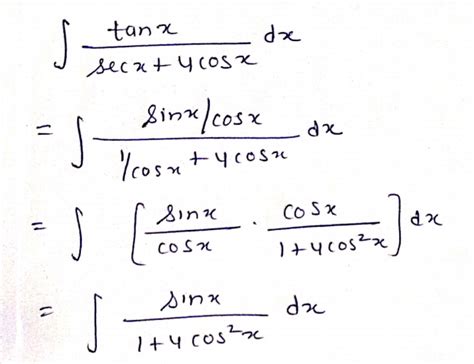 ∫ tanx / (secx + 4cosx) dx
= ∫ (sinx/cosx) / (1/cosx + 4cosx) dx
= ∫ [ sinx/cosx · cosx/(1+4cos²x) ] dx
= ∫ sinx / (1+4cos²x) dx